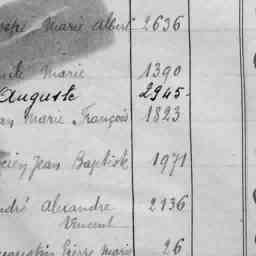 Marie Albert 2636
Marie 1390
Auguste 2945
Marie François 1823
Jean Baptiste 1971
André Alexandre 2136
Vincent
Pierre Marie 26